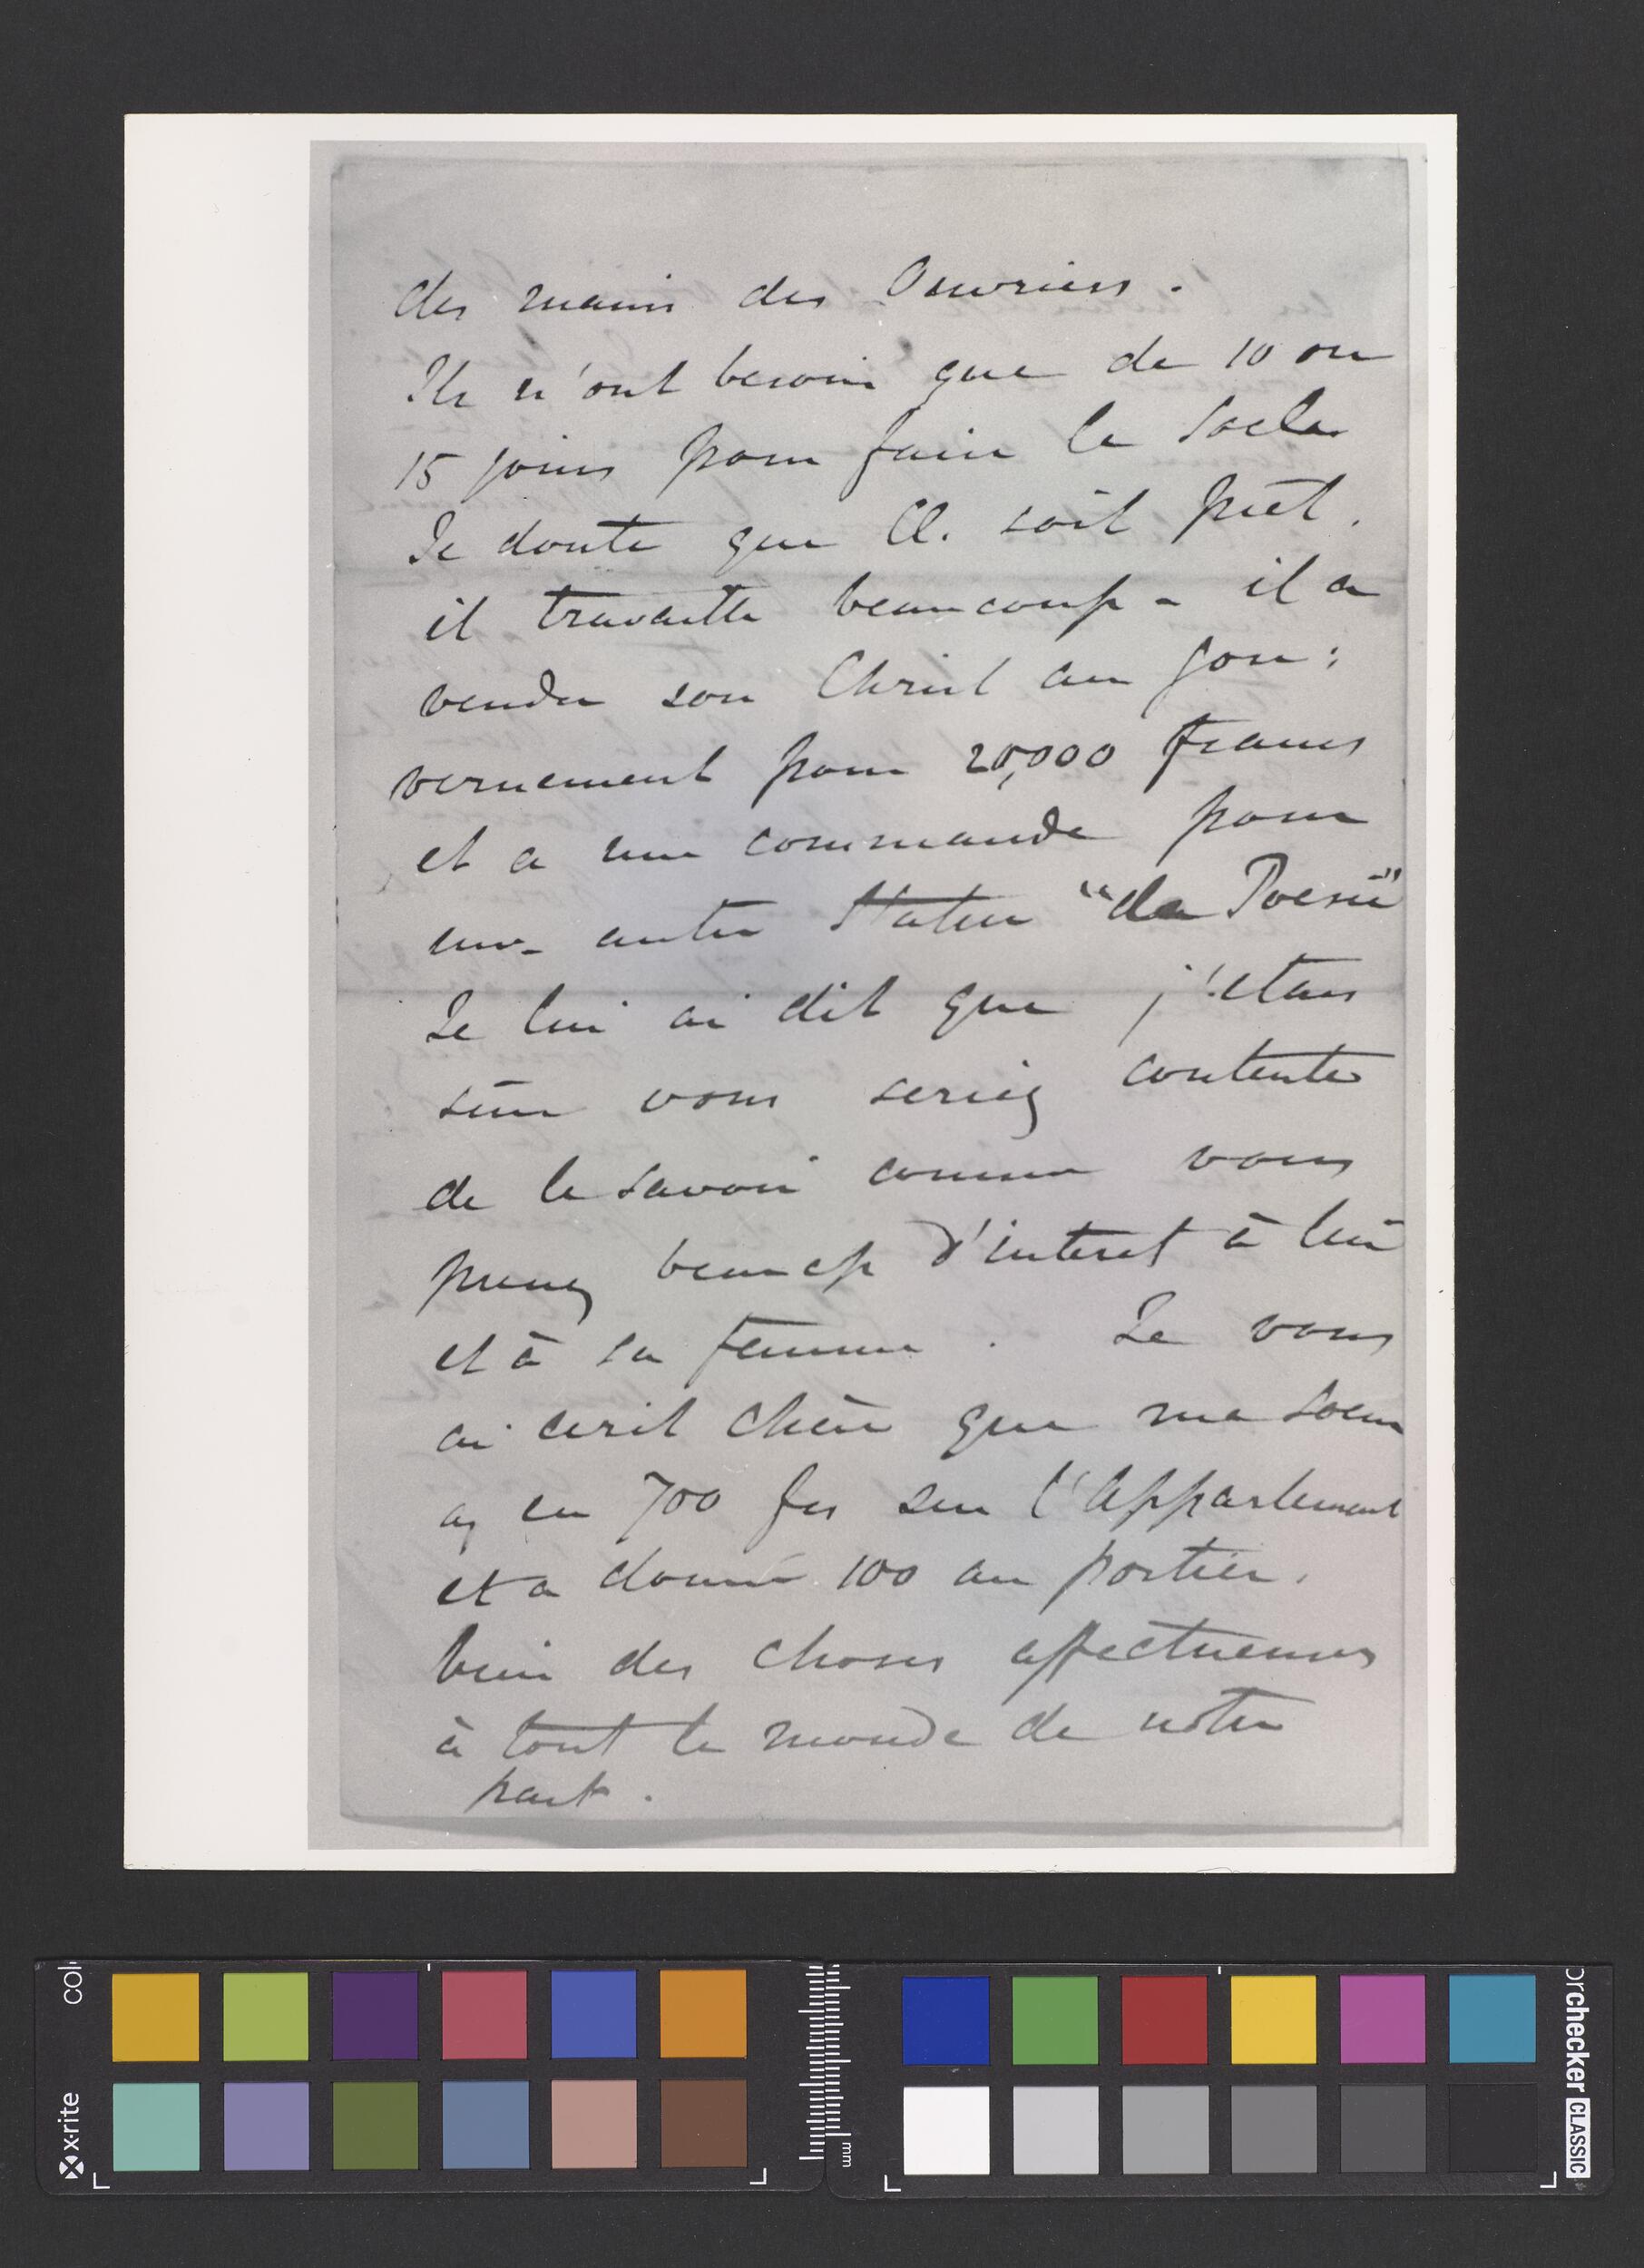 des mains des Ouvriers.
Ils n'ont besoin que de 10 ou
15 jours pour faire le socle
Je doute que Cl. soit prêt.
il travaille beaucoup - il a
vendu son Christ au gou:
vernement pour 20,000 francs
et a une commande pour
une autre Statue "de Poesie"
Je lui ai dit que j'etais
sûre vous seriez contente
de le savoir comme vous
prenez beaucp d'interet à lui
et à sa femme. Je vous
ai ecrit chère que ma soeur
a eu 700 frs sur l'appartement
et a donné 100 au portier.
bien des choses affectueuses
à tout le monde de notre
part.
colo
x-rite
mm
orchecker CLASSIC